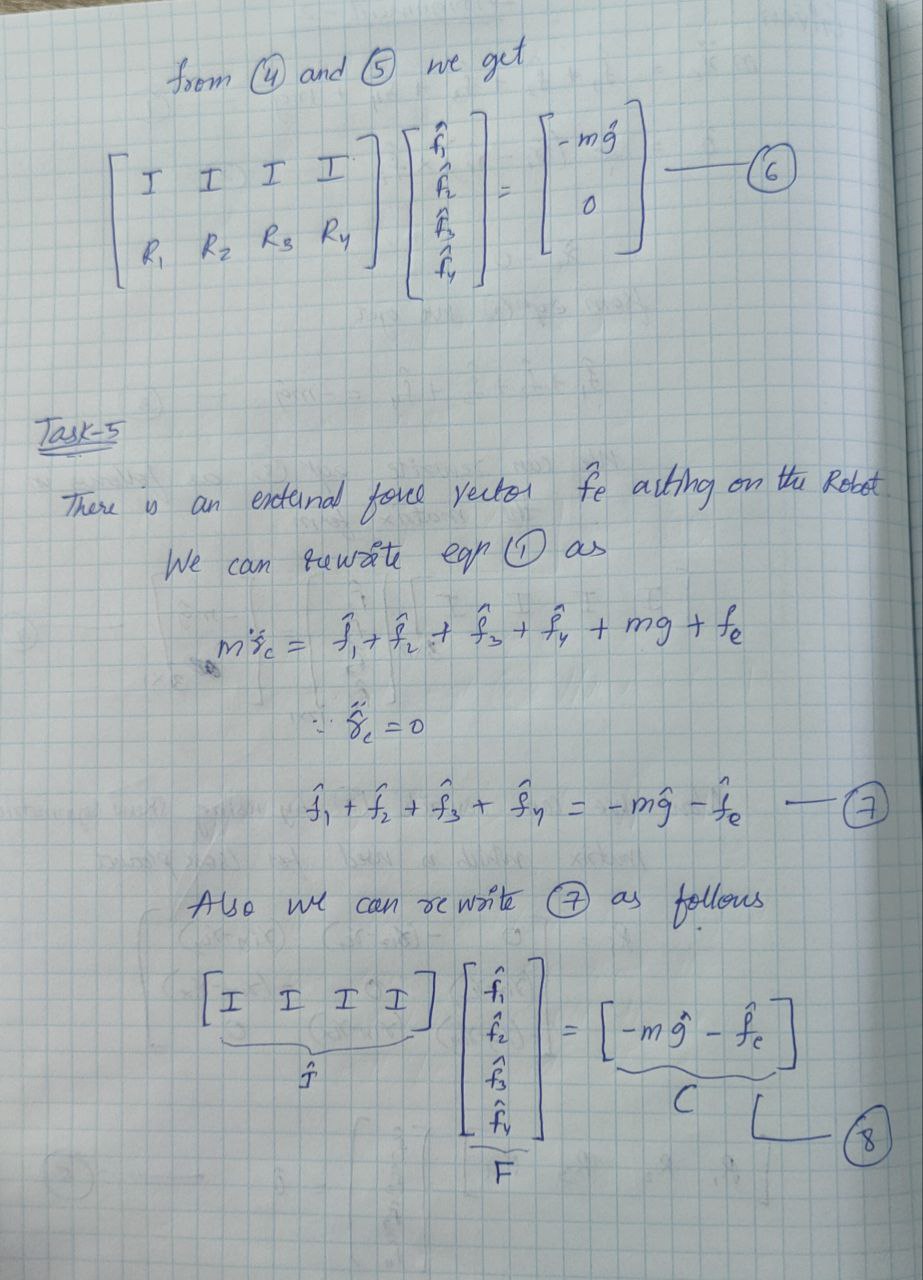 from ④ and ⑤ we get
[I I I I; R₁ R₂ R₃ R₄] [f̂₁; f̂₂; f̂₃; f̂₄] = [-mĝ; 0] — ⑥
Task-5
There is an external force vector f̂e acting on the Robot
We can rewrite eqn ① as
m r̈c = f̂₁ + f̂₂ + f̂₃ + f̂₄ + mg + fe
∵ r̈c = 0
f̂₁ + f̂₂ + f̂₃ + f̂₄ = -mĝ - f̂e — ⑦
Also we can rewrite ⑦ as follows
[I I I I] [f̂₁; f̂₂; f̂₃; f̂₄] = [-mĝ - f̂e]
Î F C — ⑧